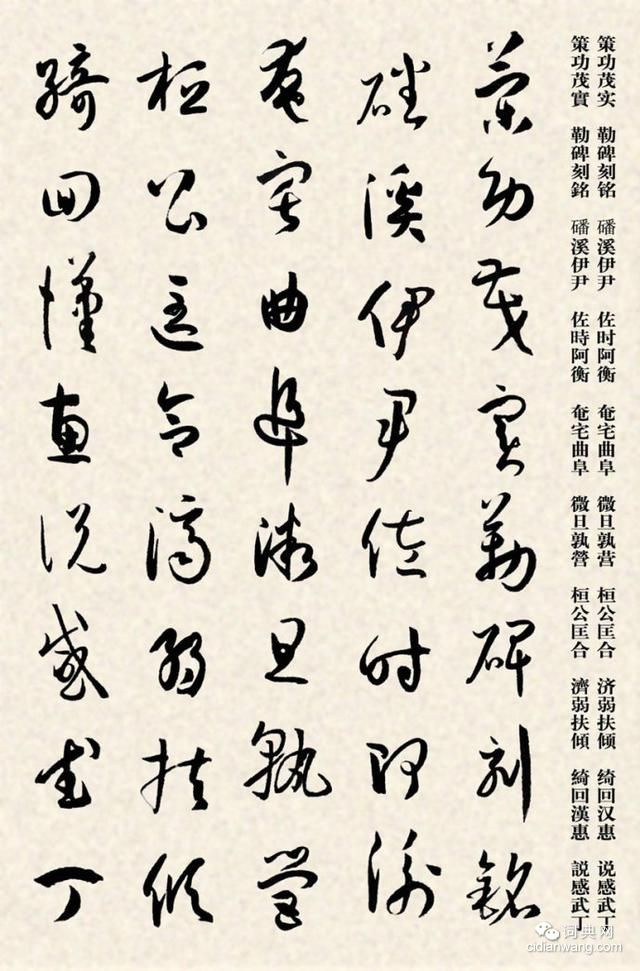 策功茂实 勒碑刻铭 磻溪伊尹 佐时阿衡 奄宅曲阜 微旦孰营 桓公匡合 济弱扶倾 绮回汉惠 说感武丁
策功茂實 勒碑刻銘 磻溪伊尹 佐時阿衡 奄宅曲阜 微旦孰營 桓公匡合 濟弱扶傾 綺回漢惠 説感武丁
策功茂實勒碑刻銘
磻溪伊尹佐時阿衡
奄宅曲阜微旦孰營
桓公匡合濟弱扶傾
綺回漢惠説感武丁
词典网
cidianwang.com